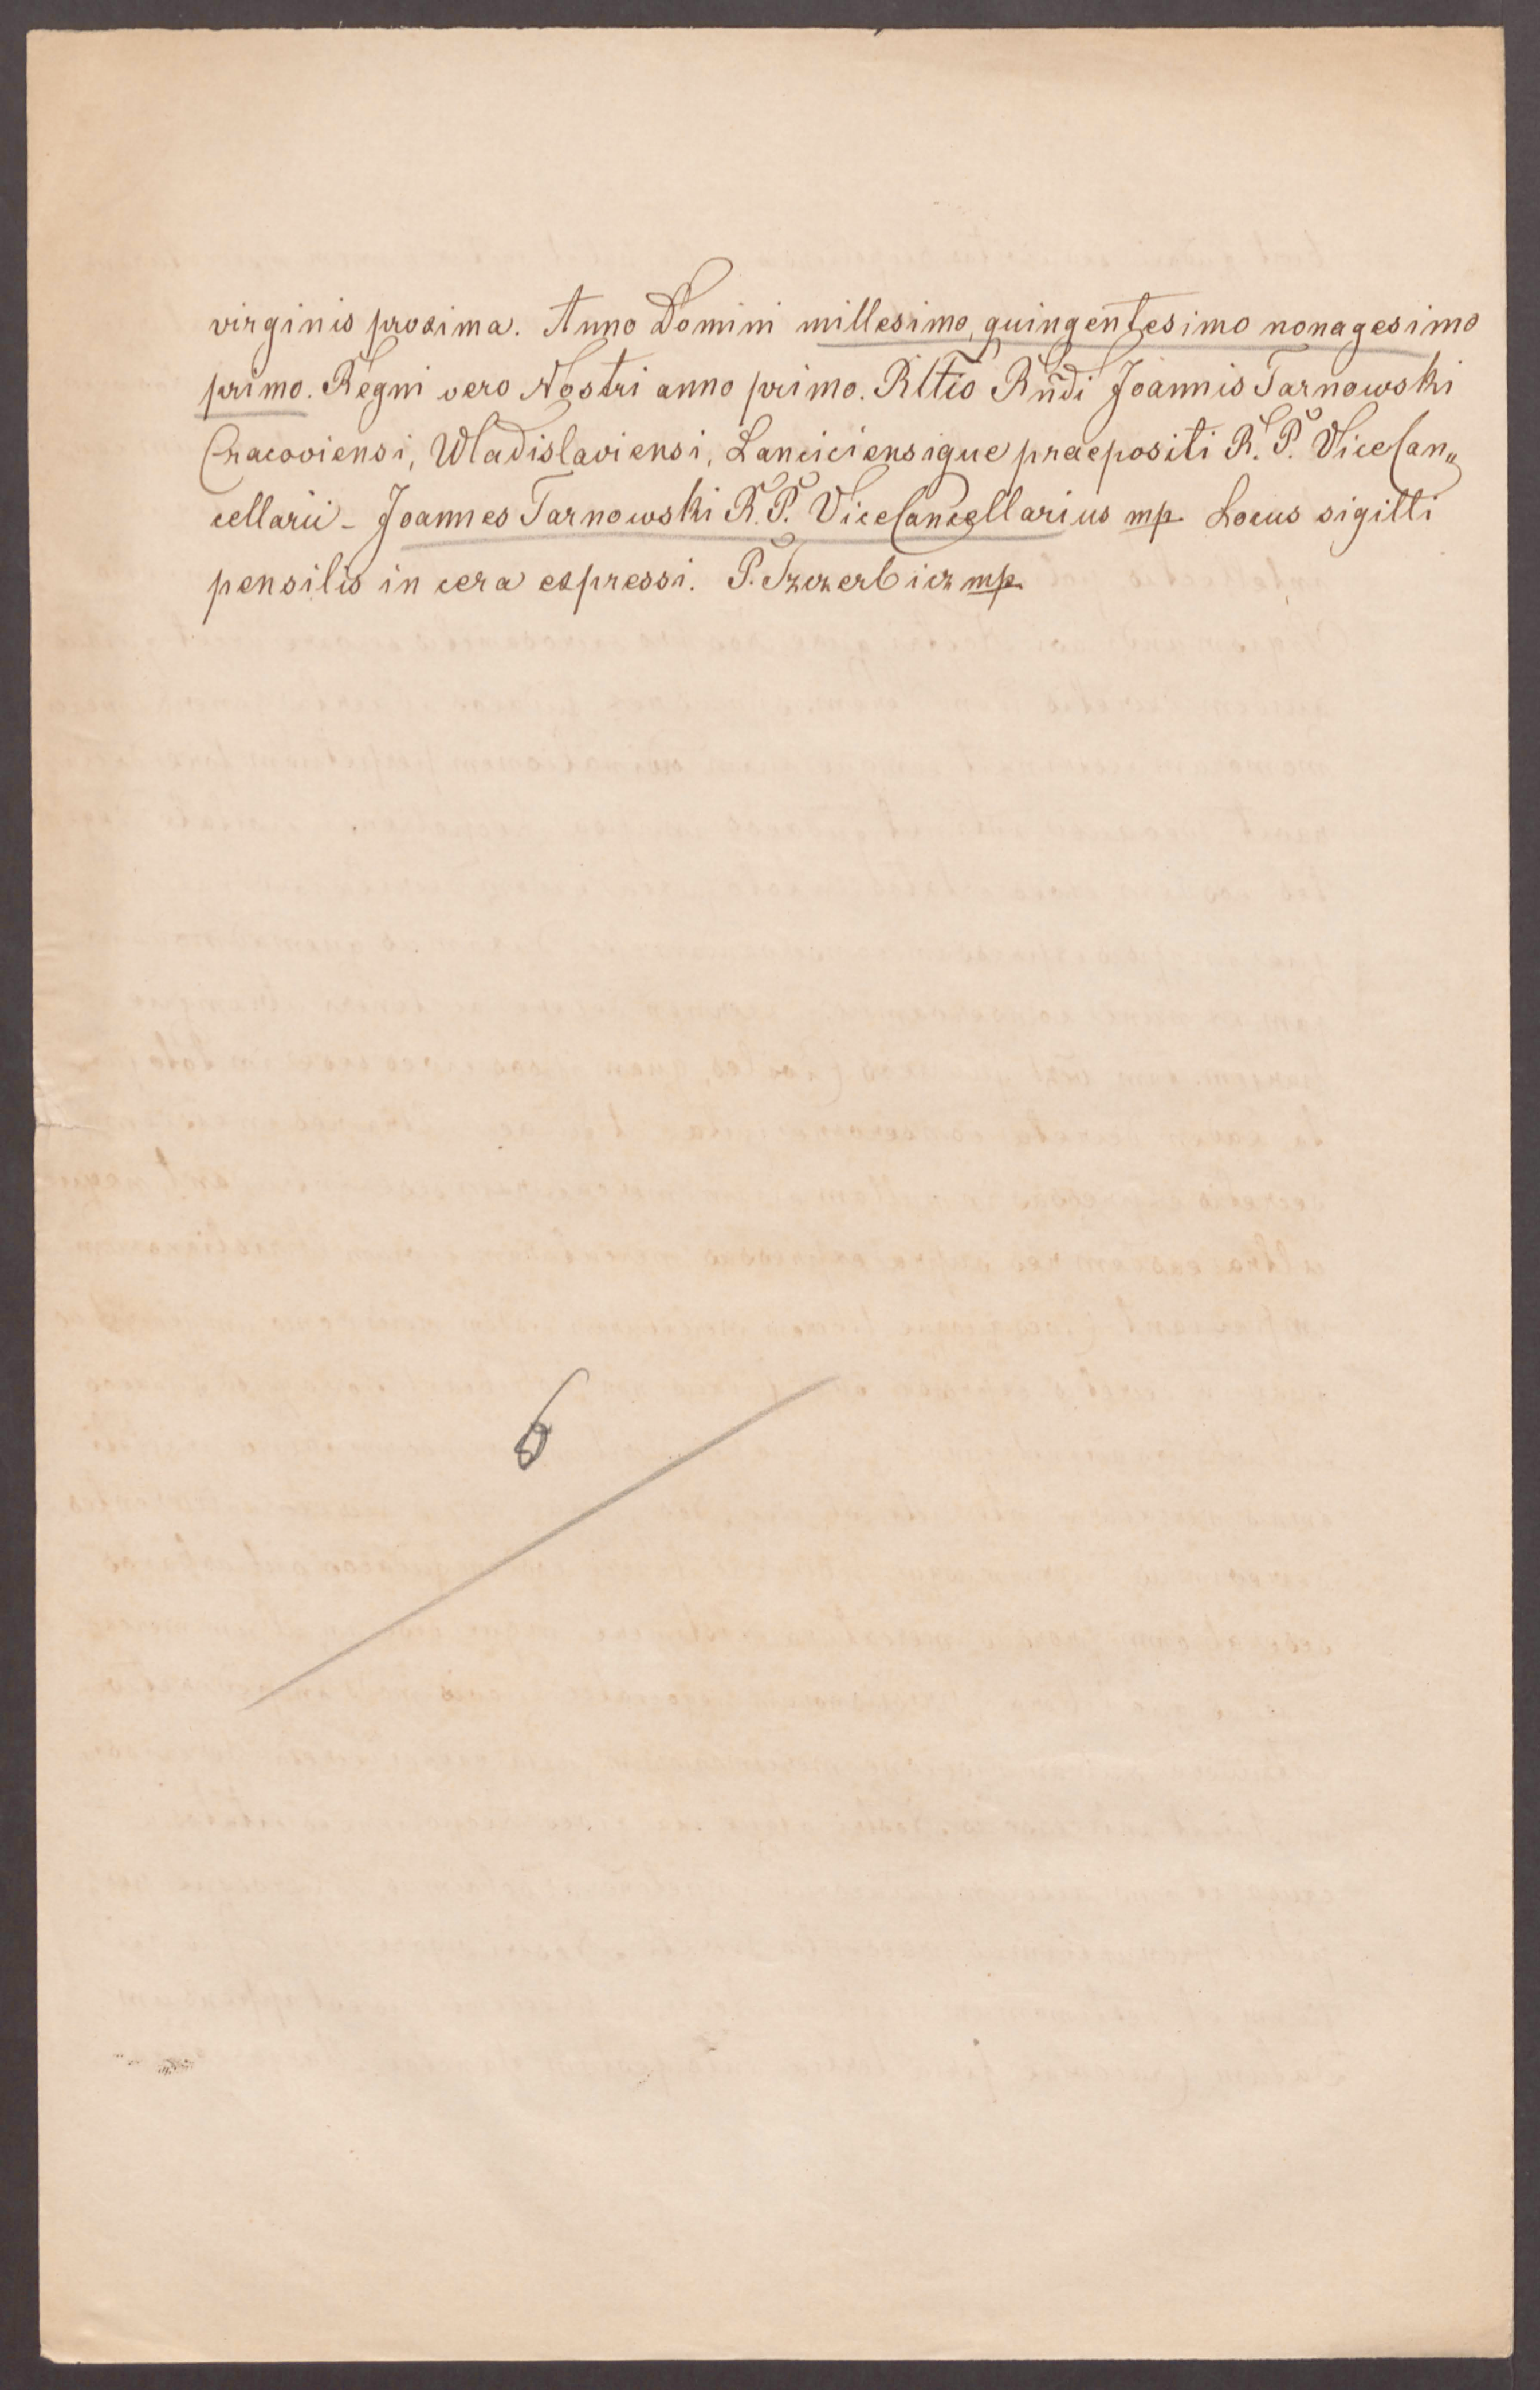 virginis proxima. Anno Domini millesimo, quingentesimo nonagesimo
primo. Regni vero Nostri anno primo. Rltio Rñdi Joannis Tarnowski
Cracoviensi, Wladislaviensi, Lanciciensique praepositi R. P. ViceCan„
cellarii - Joannes Tarnowski R. P. ViceCancellarius mp. Locus sigilli
pensilis in cera expressi. P. Szczerbicz mp.
6